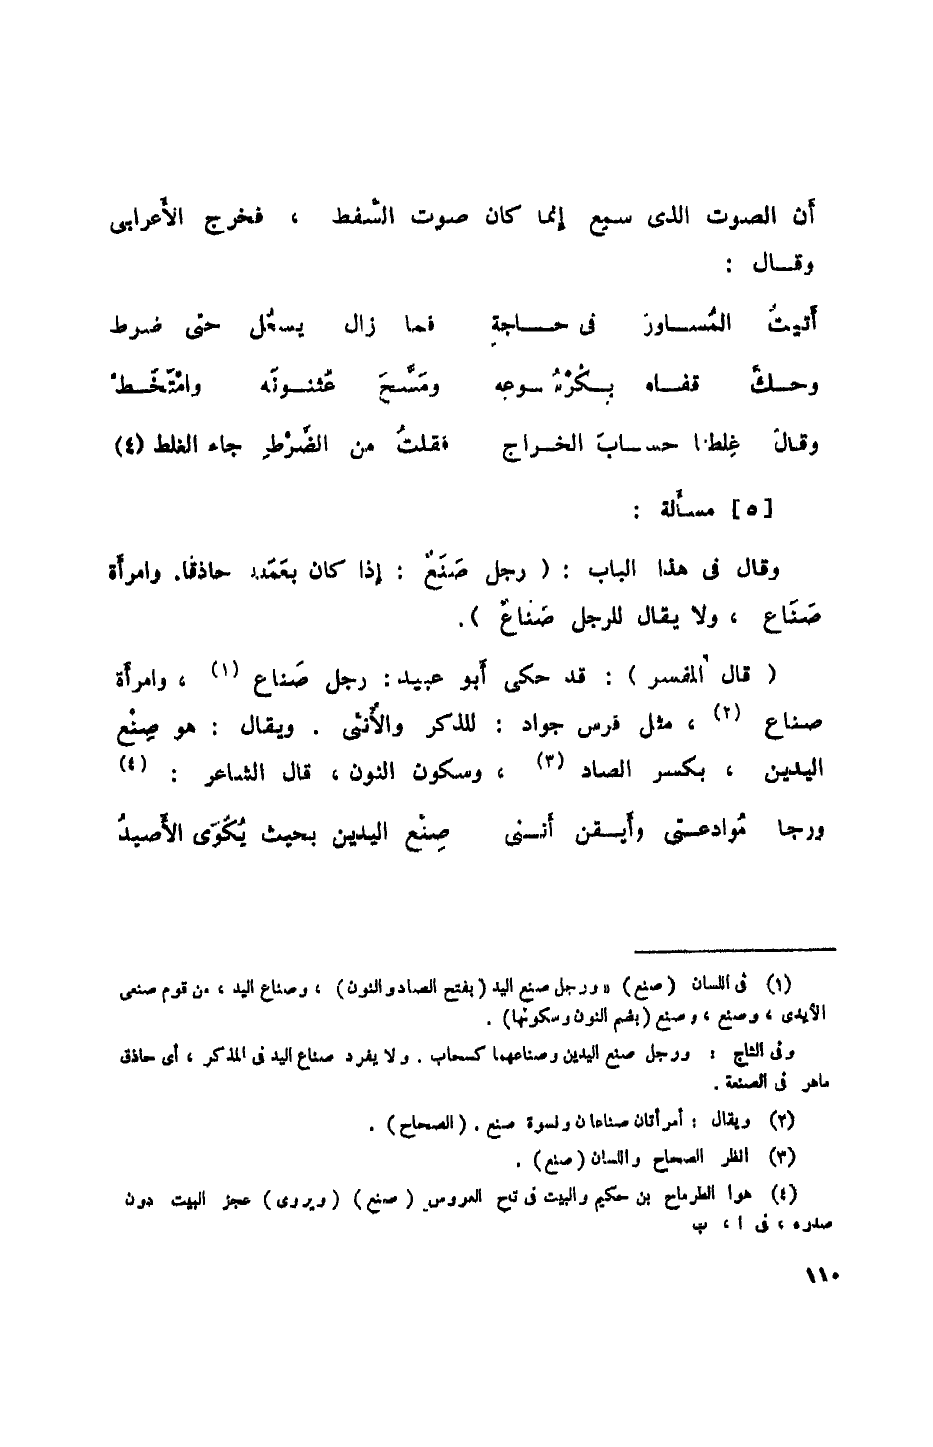 أن الصوت الذى سمع إنما كان صوت السَّفط ، فخرج الأَعرابى
وقـال :
أَتيتُ المُسـاورَ فى حـاجةٍ فما زال يسعُل حتى ضرط
وحـكَّ قفـاه بِـكُرْسُـوعِه ومَسَّحَ عُثنـونَه وامْتَخَـط
وقالَ غِلطنا حسـابَ الخـراج فقلتُ من الضَّرْطِ جاء الغلط (٤)
[٥] مسأَلة :
وقال فى هذا الباب : ( رجل صَنَعٌ : إذا كان بعَمَله حاذقًا. وامرأَة
صَنَاع ، ولا يقال للرجل صَنَاعٌ ).
( قال المفسر ) : قد حكى أَبو عبيد : رجل صَناع (١) ، وامرأَة
صناع (٢) ، مثل فرس جواد : للذكر والأُنثى . ويقال : هو صِنْع
اليدين ، بكسر الصاد (٣) ، وسكون النون ، قال الشاعر : (٤)
ورجا مُوادعـتى وأَيـقن أَنـنى صِنْع اليدين بحيث يُكْوَى الأَصيدُ
(١) فى اللسان (صنع) « ورجل صنع اليد (بفتح الصاد والنون) ، وصناع اليد ، من قوم صنعى
الأيدى ، وصنع ، وصنع (بضم النون وسكونها) .
وفى التاج : ورجل صنع اليدين وصناعهما كسحاب . ولا يفرد صناع اليد فى المذكر ، أى حاذق
ماهر فى الصنعة .
(٢) ويقال : أمرأتان صناعان ونسوة صنع . (الصحاح) .
(٣) انظر الصحاح واللسان (صنع) .
(٤) هوا الطرماح بن حكيم والبيت فى تاج العروس (صنع) (ويروى) عجز البيت دون
صدره ، فى ا ، ب
١١٠